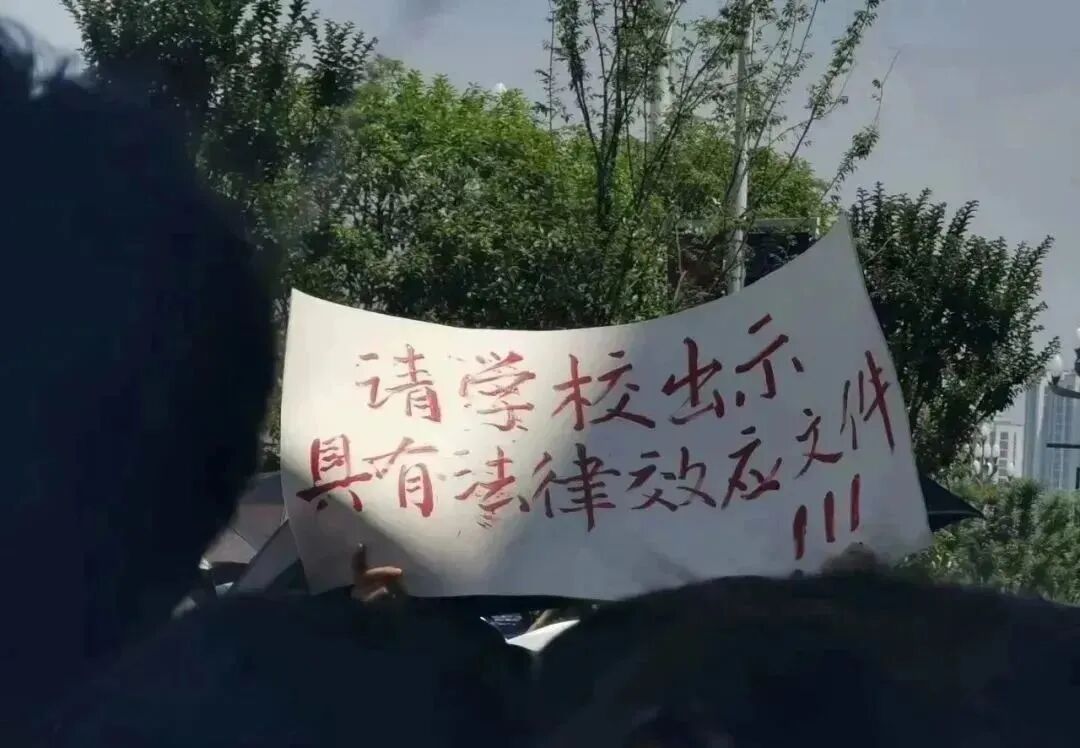 请学校出示
具有法律效应文件
!!!